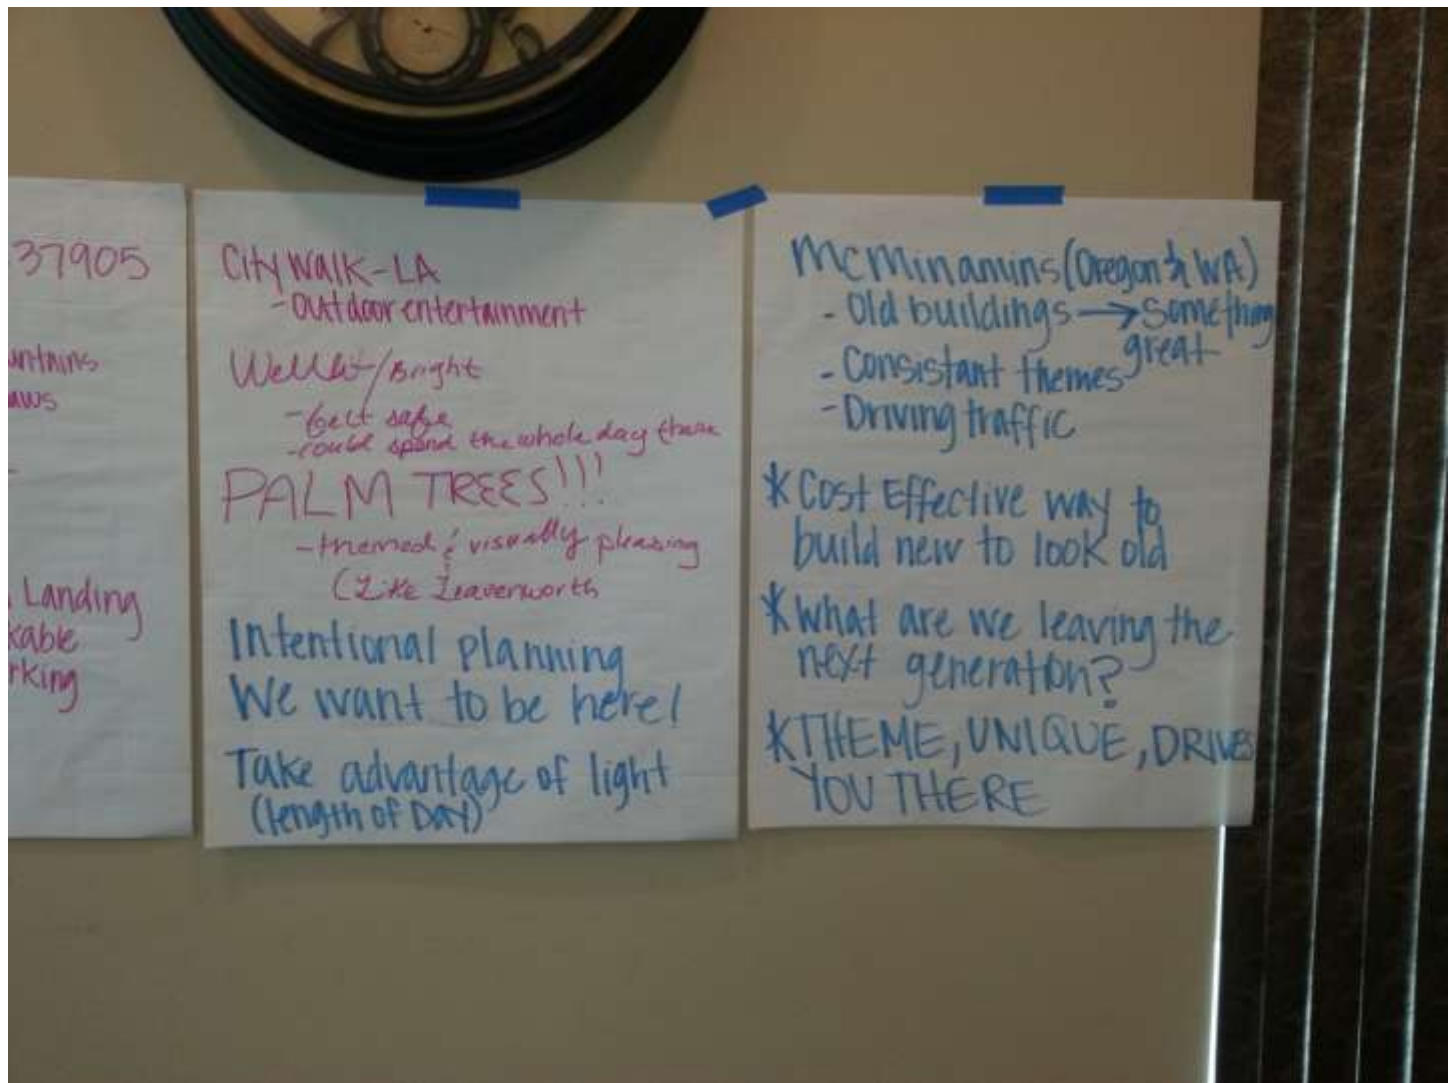 37905
Landing
CityWalk-LA
-Outdoor entertainment
Well lit/Bright
-felt safe
-could spend the whole day there
PALM TREES!!!
-themed & visually pleasing
(Like Leavenworth
Intentional planning
We want to be here!
Take advantage of light
(length of Day)
McMinamins (Oregon & WA)
- Old buildings → something
great
- Consistant themes
- Driving traffic
* Cost Effective way to
build new to look old
* What are we leaving the
next generation?
* THEME, UNIQUE, DRIVES
YOU THERE